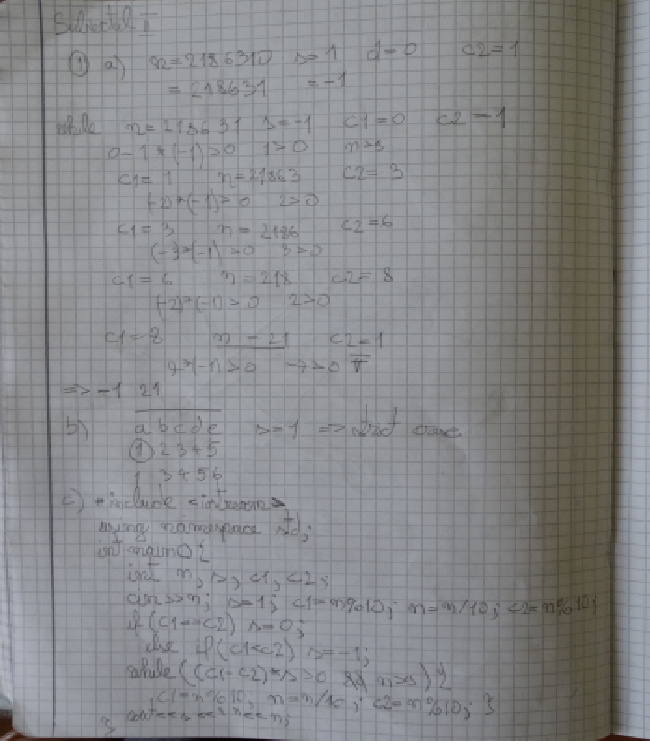 Subiectul II
① a) n=2186310 s=1 d=0 c2=1
= 218631 =-1
while n=218631 s=-1 c1=0 c2=1
0-1*(-1)>0 1>0
c1=1 n=21863 c2=3
(-2)*(-1)>0 2>0
c1=3 n=2186 c2=6
(-3)*(-1)>0 3>0
c1=6 n=218 c2=8
(-2)*(-1)>0 2>0
c1=8 n=21 c2=1
7*(-1)>0 -7>0
=> -1 21
b) abcde s=1 =>
① 2345
1 3456
c) #include <iostream>
using namespace std;
int main() {
int n, s, c1, c2;
cin>>n; s=1; c1=n%10; n=n/10; c2=n%10;
if(c1==c2) s=0;
else if(c1<c2) s=-1;
while((c1-c2)*s>0 && n>9) {
c1=n%10; n=n/10; c2=n%10; }